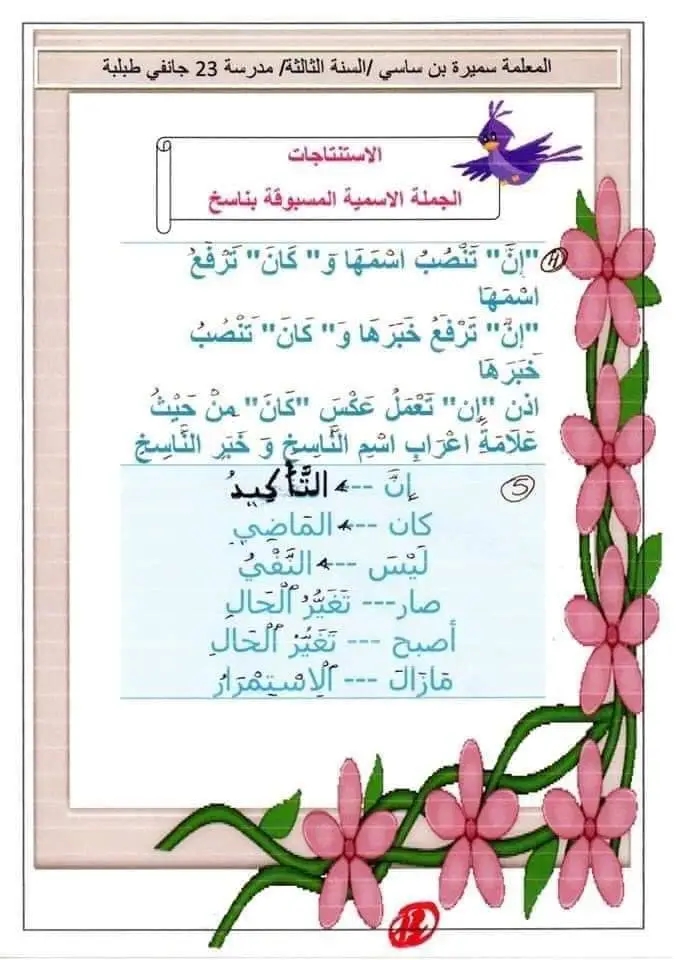 المعلمة سميرة بن ساسي /السنة الثالثة/ مدرسة 23 جانفي طبلبة
الاستنتاجات
الجملة الاسمية المسبوقة بناسخ
"إِنَّ" تَنْصُبُ اسْمَهَا وَ" كَانَ" تَرْفَعُ
اسْمَهَا
"إِنَّ" تَرْفَعُ خَبَرَهَا وَ" كَانَ" تَنْصُبُ
خَبَرَهَا
اذن "إن" تَعْمَلُ عَكْسَ "كَانَ" مِنْ حَيْثُ
عَلَامَةِ اعْرَابِ اسْمِ النَّاسِخِ وَ خَبَرِ النَّاسِخِ
5 إِنَّ --- التَّأْكِيدُ
كان --- المَاضِي
لَيْسَ --- النَّفْيُ
صار--- تَغَيُّرُ الْحَالِ
أصبح --- تَغَيُّرُ الْحَالِ
مَازَالَ --- الْاِسْتِمْرَارُ